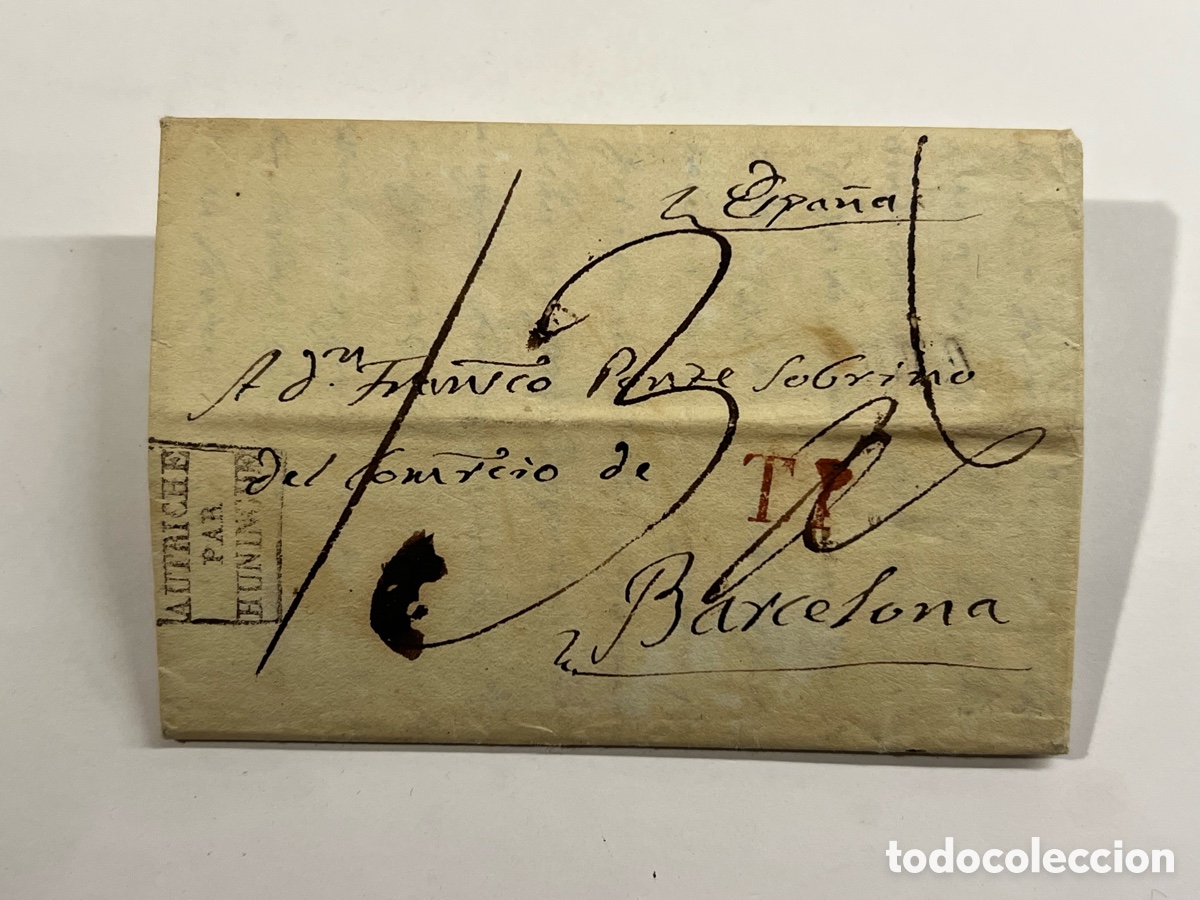 España
A d.ⁿ Franᶜᵒ Ponze Sobrino
del Comercio de
Barcelona
AUTRICHE
PAR
HUNINGUE
T.
todocoleccion